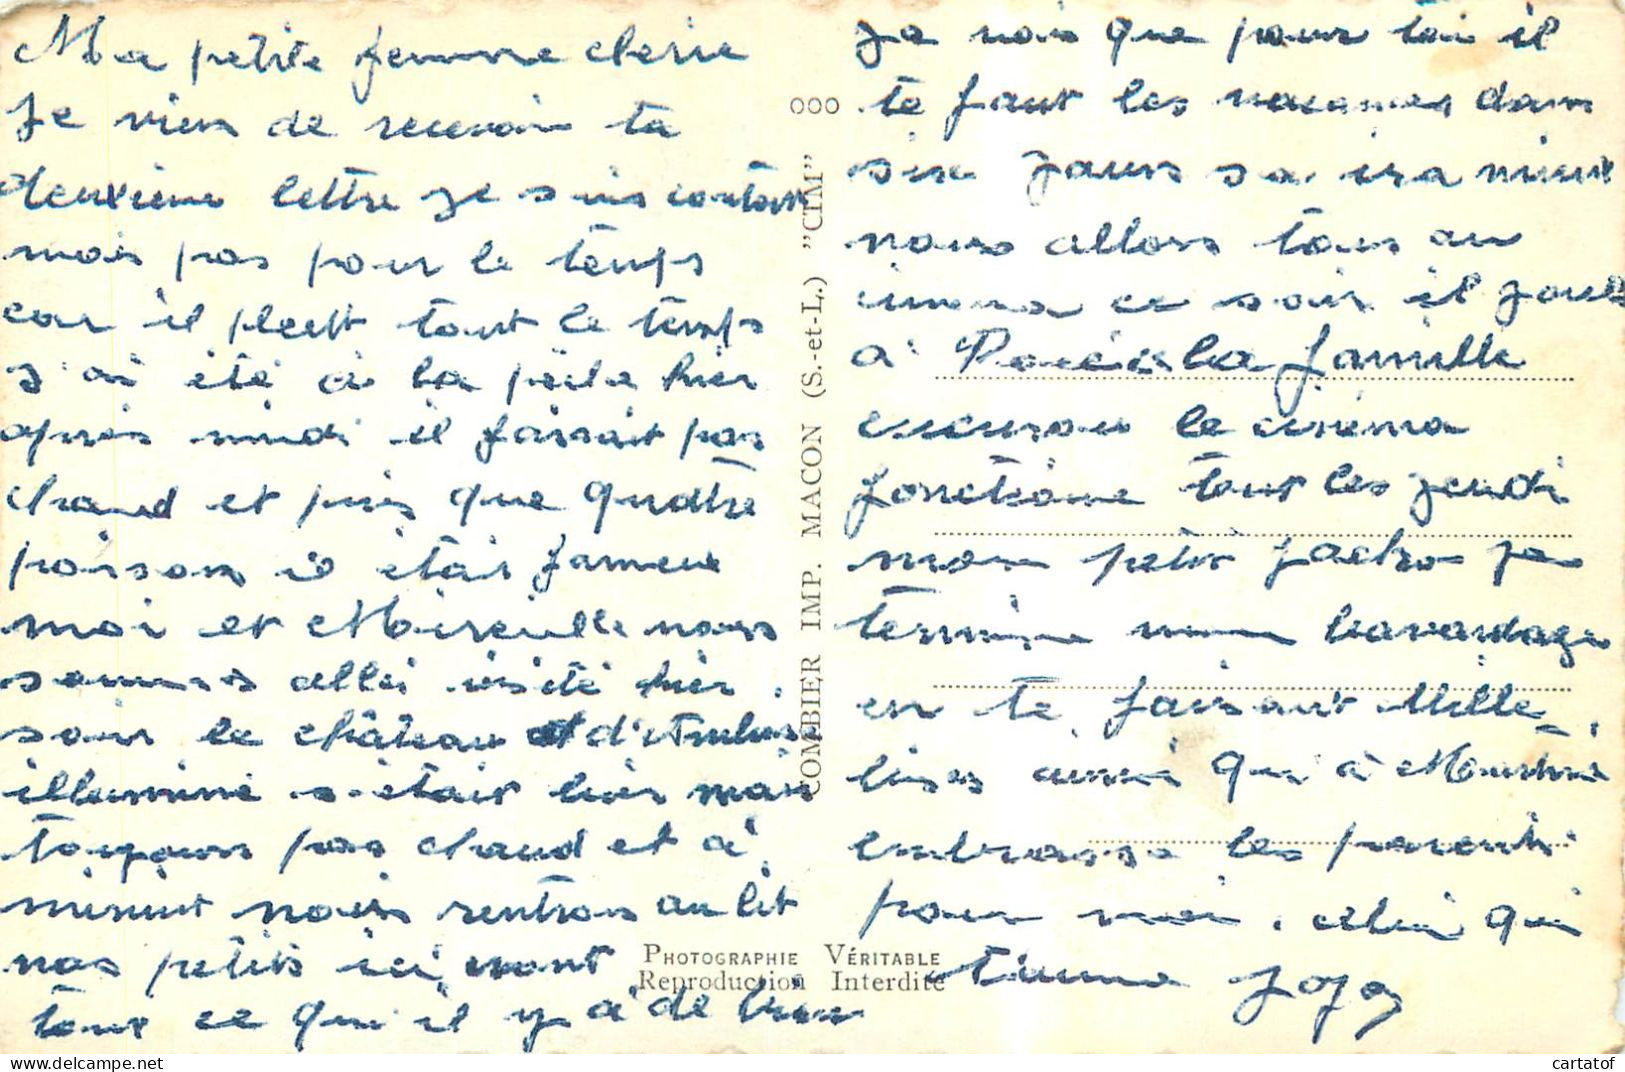 Ma petite femme cherie
Je viens de recevoir ta
deuxieme lettre je suis contant
mais pas pour le temps
car il pleut tout le temps
J'ai été à la pêche hier
après midi il faisait pas
chaud et puis que quatre
poisons il était fameux
moi et Mireille nous
sommes allés visité hier
soir le château d'Amboise
illuminé s'était bien mais
toujours pas chaud et à
minuit nous rentrons au lit
nos petits ici vont
tout ce qu'il y a de bien
Je vois que pour toi il
te faut les vacances dans
six jours sa ira mieux
nous allons tous au
cinema ce soir il joue
à Pocé la famille
le cinema
fonctionne tout les jeudi
mon petit je
termine mon bavardage
en te faisant Mille
bises ainsi qu'à Martine
embrasse les parents
pour moi. celui qui
t'aime Jojo
COMBIER IMP. MACON (S.-et-L.) "CIM"
PHOTOGRAPHIE VÉRITABLE
Reproduction Interdite
cartatof